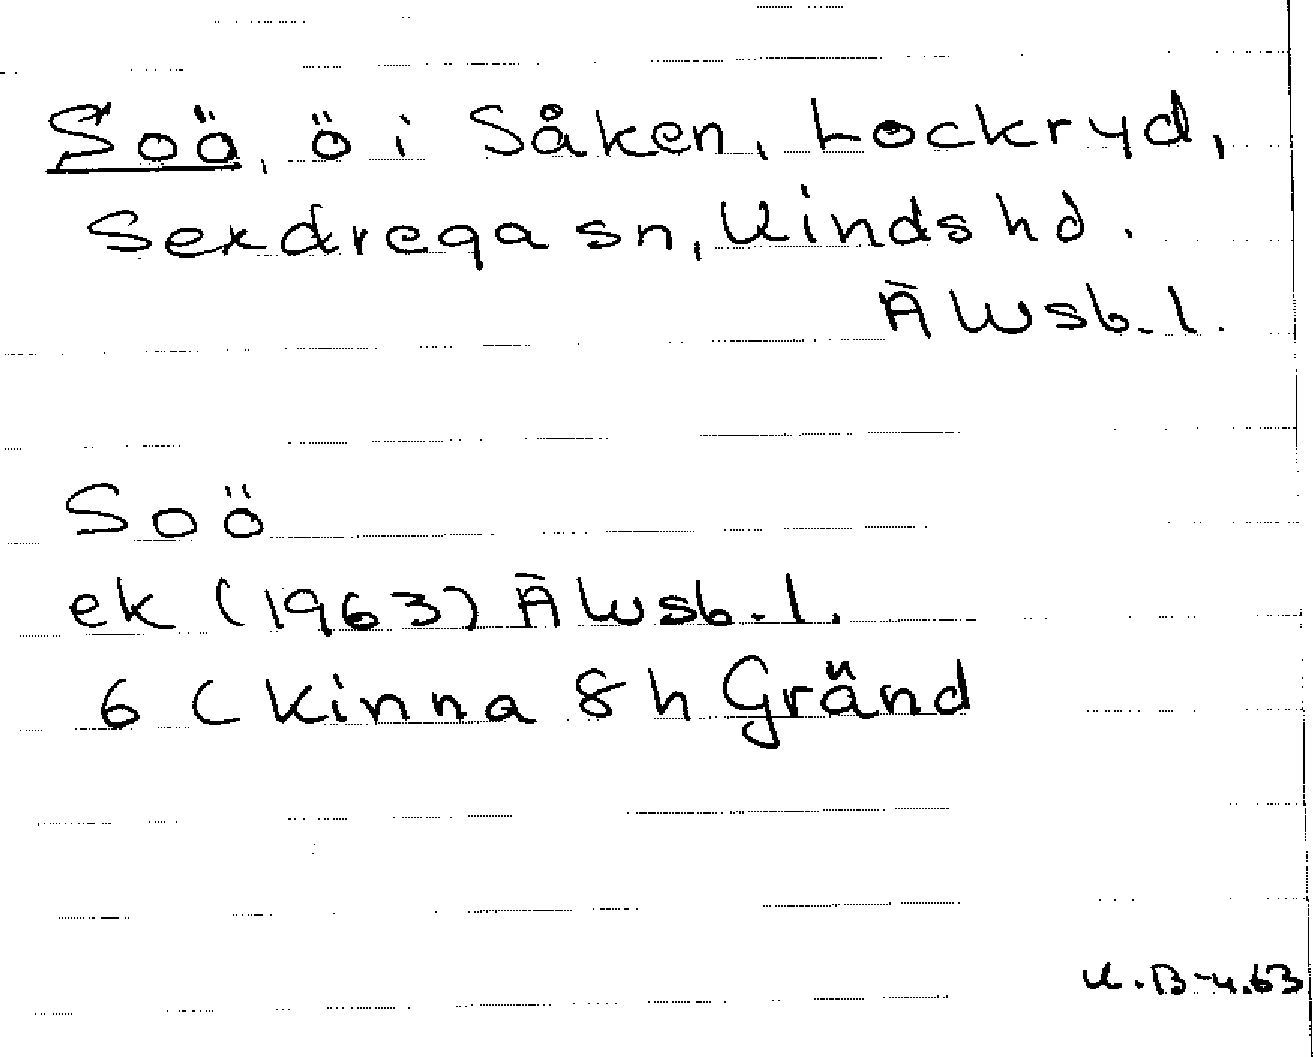 Soö, ö i Såken, Lockryd,
Sexdrega sn, Kinds hd.
Älvsb. l.
Soö
ek (1963) Älvsb. l.
6 C Kinna 8 h Gränd
K. B-u. 63